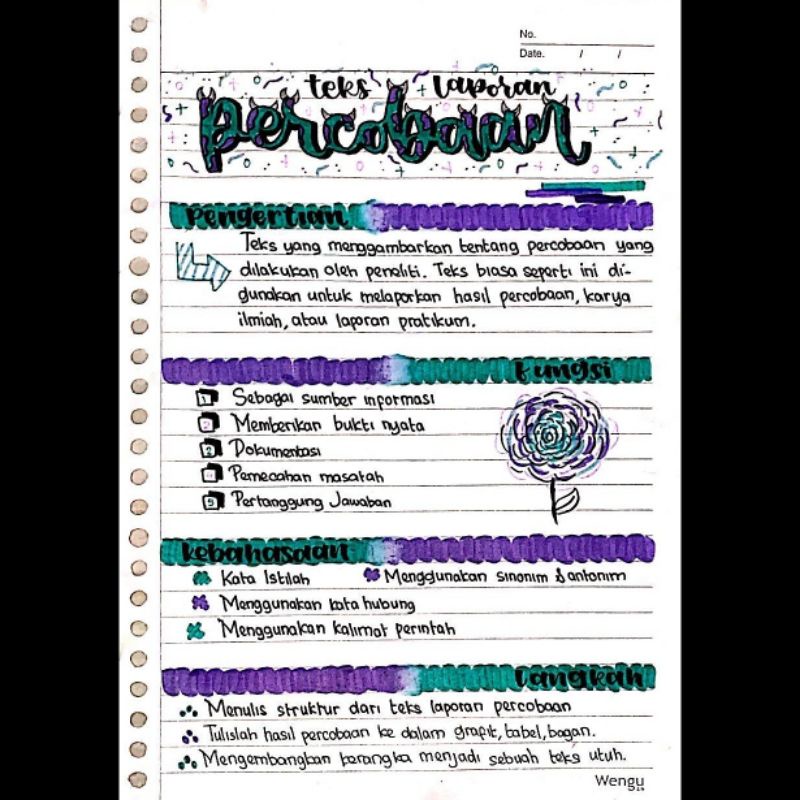 No.
Date. / /
teks laporan
percobaan
Pengertian
Teks yang menggambarkan tentang percobaan yang
dilakukan oleh peneliti. Teks biasa seperti ini di-
gunakan untuk melaporkan hasil percobaan, karya
ilmiah, atau laporan pratikum.
Fungsi
1 Sebagai sumber informasi
2 Memberikan bukti nyata
3 Dokumentasi
4 Pemecahan masalah
5 Pertanggung Jawaban
kebahasaan
Kata Istilah Menggunakan sinonim & antonim
Menggunakan kata hubung
Menggunakan kalimat perintah
Langkah
Menulis struktur dari teks laporan percobaan
Tulislah hasil percobaan ke dalam grafit, tabel, bagan.
Mengembangkan karangka menjadi sebuah teks utuh.
Wengu